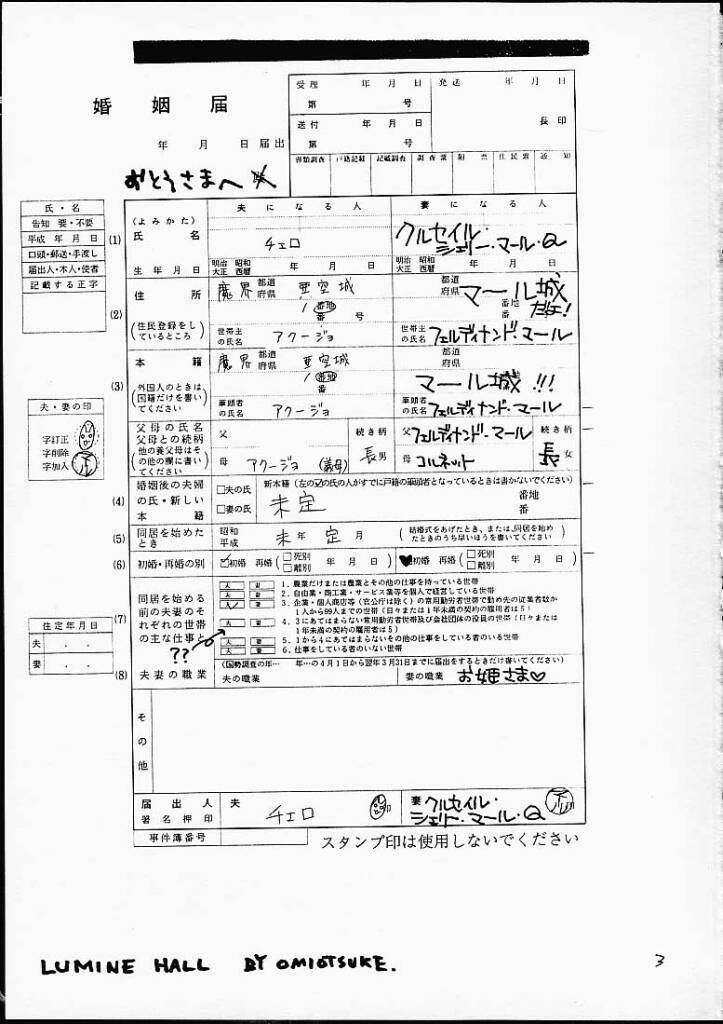 婚姻届
年 月 日 届出
受理 年 月 日
第 号
発送 年 月 日
送付 年 月 日
第 号
長印
書類調査 戸籍記載 記載調査 調査票 附票 住民票 通知
おとうさまへ
氏・名
告知 要・不要
平成 年 月 日
口頭・郵送・手渡し
届出人・本人・使者
記載する正字
夫になる人 妻になる人
(1)
(よみかた)
氏名
チェロ
クルセイル・
シェリー・マール・Q
生年月日
明治 昭和
大正 西暦
年 月 日
明治 昭和
大正 西暦
年 月 日
(2)
住所
(住民登録をしているところ)
魔界 都道府県 亜空城
1 番地
番 号
世帯主の氏名 アクージョ
都道府県 マール城
番地
番 号
だよ!
世帯主の氏名 フェルディナンド・マール
(3)
本籍
(外国人のときは国籍だけを書いてください)
魔界 都道府県 亜空城
1 番地
番
筆頭者の氏名 アクージョ
都道府県
マール城!!!
筆頭者の氏名 フェルディナンド・マール
父母の氏名
父母との続柄
(他の養父母はその他の欄に書いてください)
父
母 アクージョ (義母)
続き柄
長 男
父 フェルディナンド・マール
母 コルネット
続き柄
長 女
夫・妻の印
字訂正
字削除
字加入
(4)
婚姻後の夫婦の氏・新しい本籍
□夫の氏
□妻の氏
新本籍(左の☑の氏の人がすでに戸籍の筆頭者となっているときは書かないでください)
未定
番地
番
(5)
同居を始めたとき
昭和
平成
未 年 定 月
(結婚式をあげたとき、または、同居を始めたときのうち早いほうを書いてください)
(6)
初婚・再婚の別
☑初婚 再婚(□死別 □離別 年 月 日)
♥初婚 再婚(□死別 □離別 年 月 日)
(7)
同居を始める前の夫妻のそれぞれの世帯の主な仕事と
??
夫 妻 1.農業だけまたは農業とその他の仕事を持っている世帯
夫 妻 2.自由業・商工業・サービス業等を個人で経営している世帯
夫 妻 3.企業・個人商店等(官公庁は除く)の常用勤労者世帯で勤め先の従業者数が1人から99人までの世帯(日々または1年未満の契約の雇用者は5)
夫 妻 4.3にあてはまらない常用勤労者世帯及び会社団体の役員の世帯(日々または1年未満の契約の雇用者は5)
夫 妻 5.1から4にあてはまらないその他の仕事をしている者のいる世帯
夫 妻 6.仕事をしている者のいない世帯
住定年月日
夫 . .
妻 . .
(8)
夫妻の職業
(国勢調査の年… 年…の4月1日から翌年3月31日までに届出をするときだけ書いてください)
夫の職業
妻の職業 お姫さま♡
その他
届出人
署名押印
夫 チェロ 印
妻 クルセイル・
シェリー・マール・Q 印
事件簿番号
スタンプ印は使用しないでください
LUMINE HALL BY OMIOTSUKE.
3